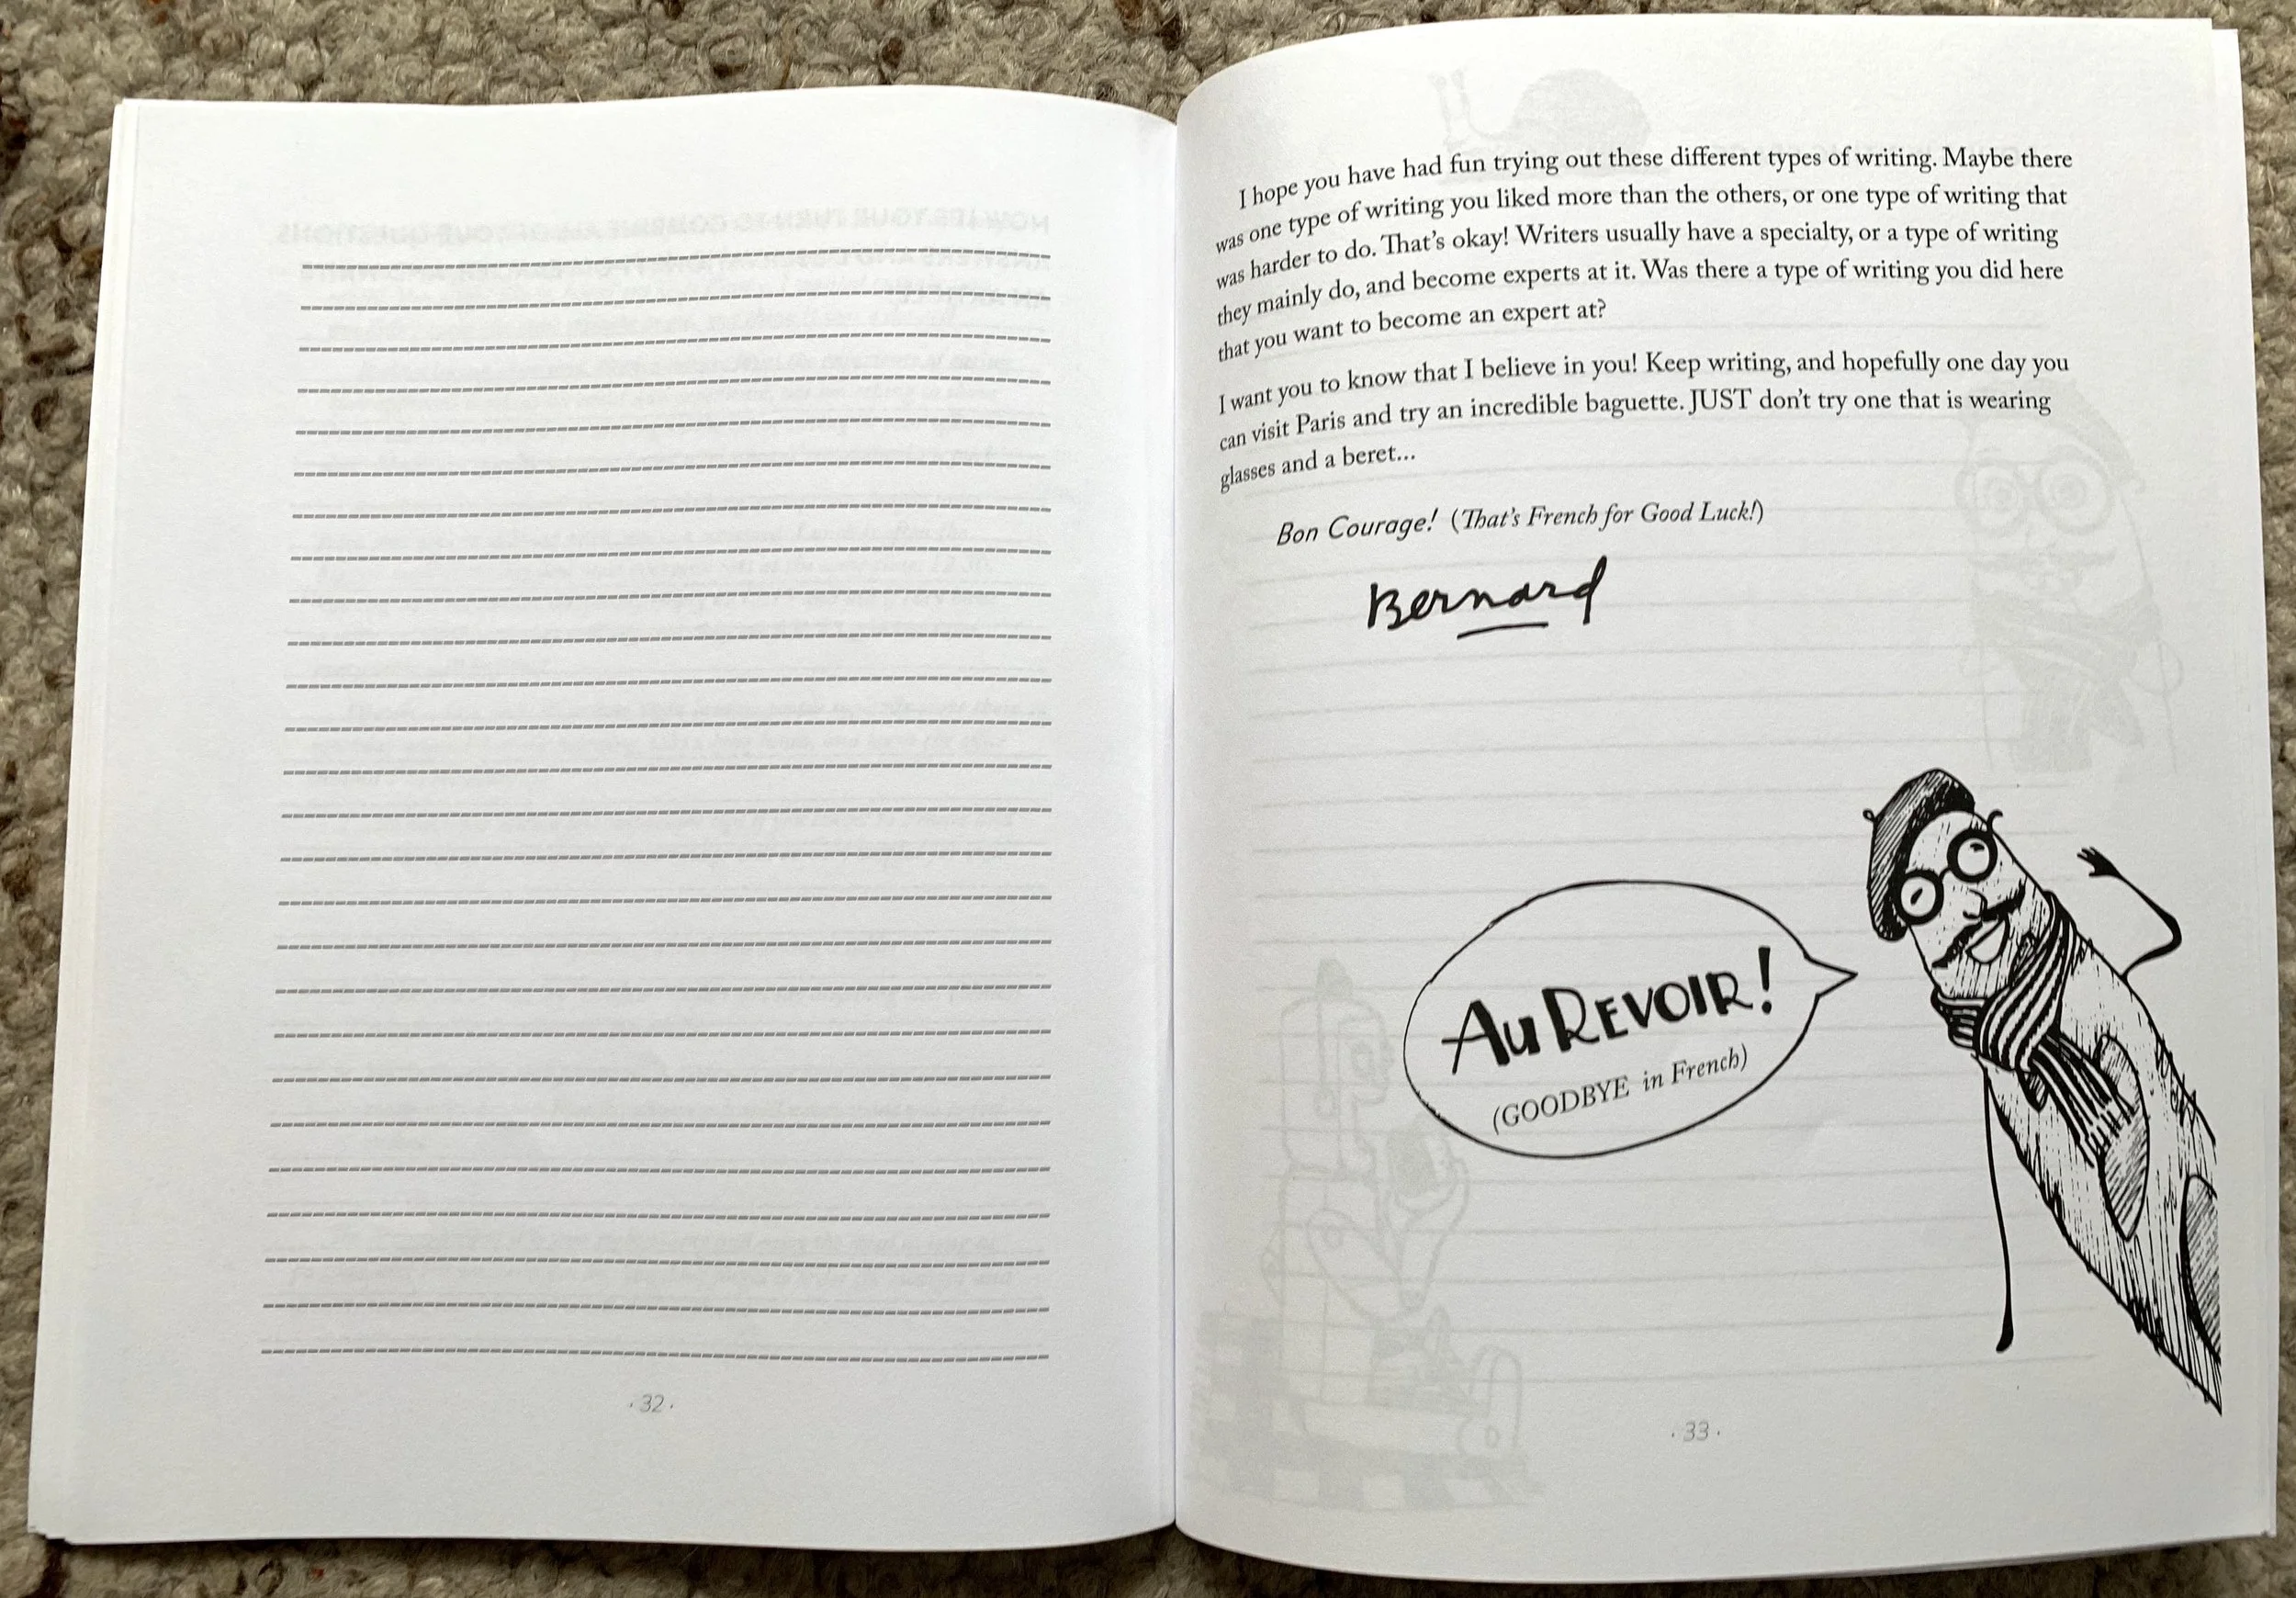 · 32 ·
I hope you have had fun trying out these different types of writing. Maybe there
was one type of writing you liked more than the others, or one type of writing that
was harder to do. That's okay! Writers usually have a specialty, or a type of writing
they mainly do, and become experts at it. Was there a type of writing you did here
that you want to become an expert at?
I want you to know that I believe in you! Keep writing, and hopefully one day you
can visit Paris and try an incredible baguette. JUST don't try one that is wearing
glasses and a beret...
Bon Courage! (That's French for Good Luck!)
Bernard
Au REVOIR!
(GOODBYE in French)
· 33 ·